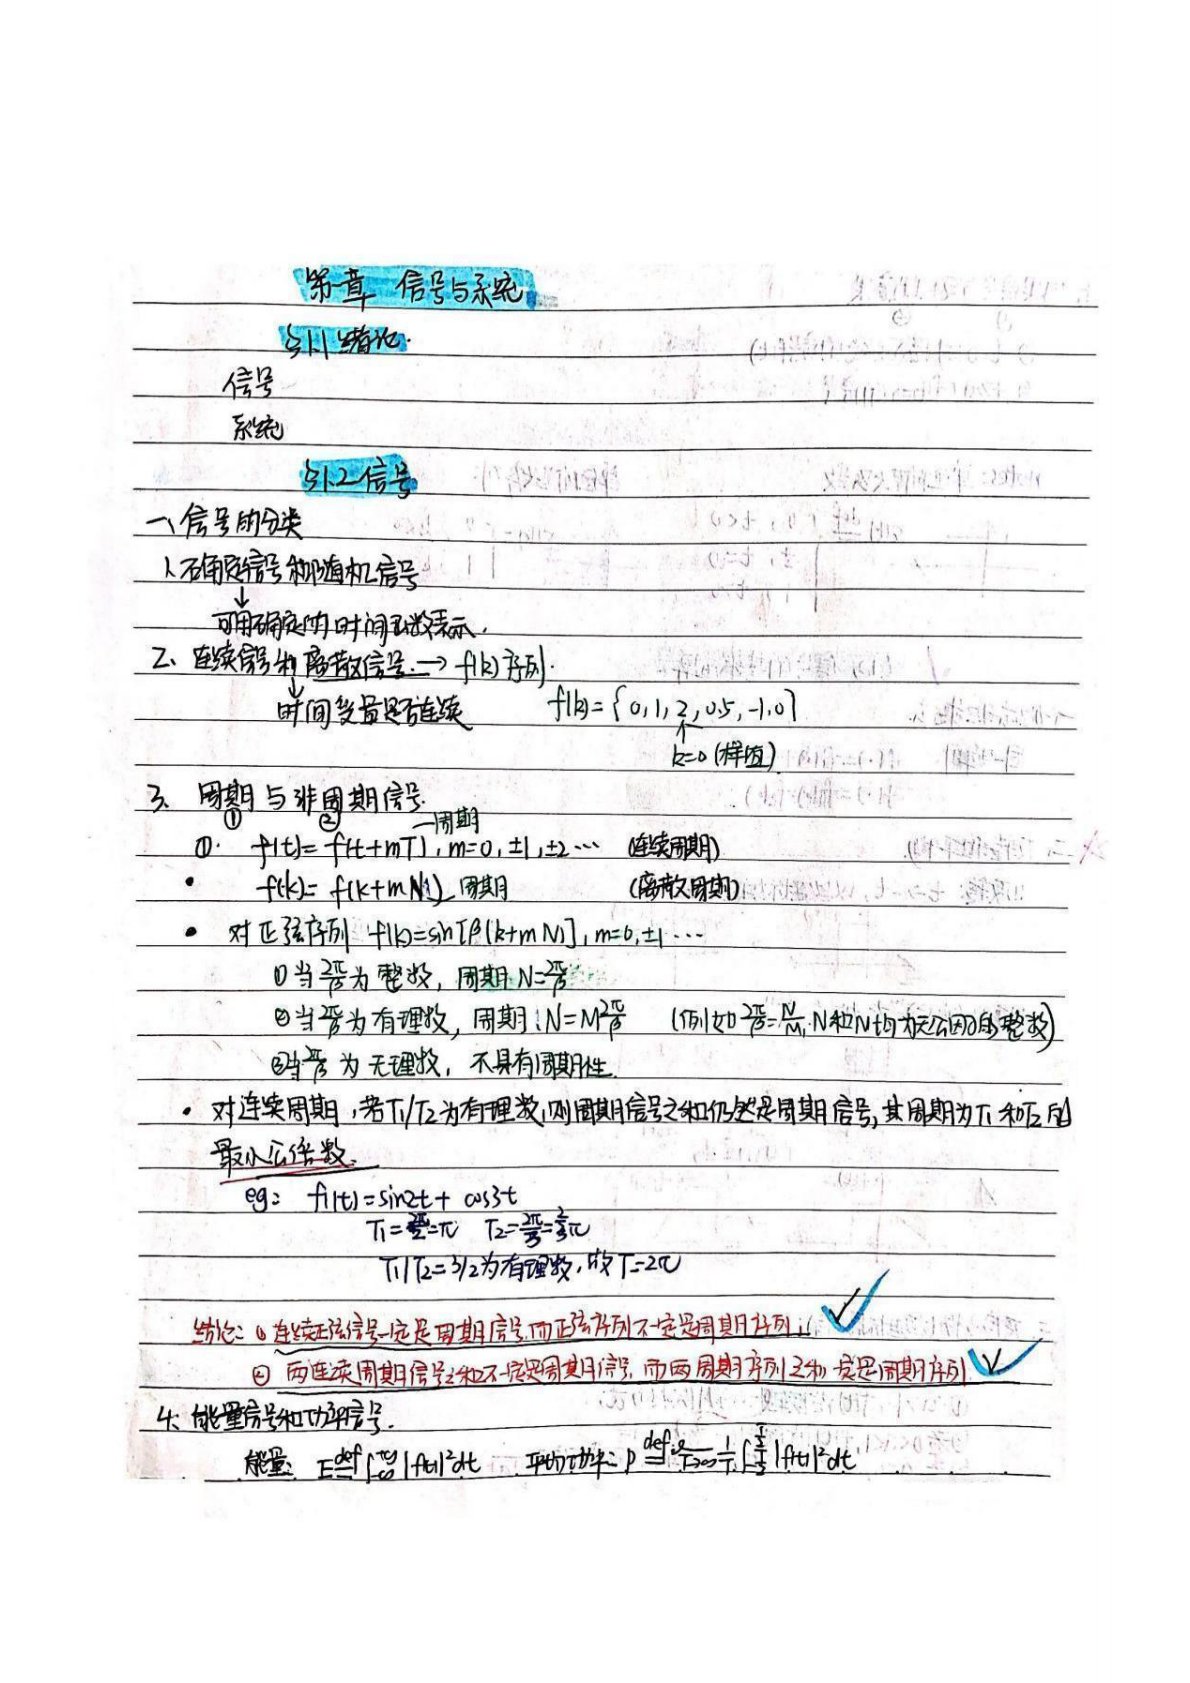 第一章 信号与系统
§1.1 绪论.
信号
系统
§1.2 信号
一、信号的分类
1、确定信号和随机信号
↓
可用确定的时间函数表示.
2、连续信号和离散信号 → f(k)序列.
↓
时间变量是否连续 f(k)={0,1,2,0.5,-1,0}
↑
k=0 (样值)
3、周期与非周期信号.
① ②
→周期
①. f(t)=f(t+mT), m=0,±1,±2… (连续周期)
• f(k)=f(k+mN) 周期 (离散周期)
• 对正弦序列 f(k)=sin[β(k+mN)], m=0,±1…
①当2π/β为整数, 周期N=2π/β
②当2π/β为有理数, 周期:N=M2π/β (例如2π/β=N/M, N和M均为无公因子的整数)
③当2π/β为无理数, 不具有周期性.
• 对连续周期,若T₁/T₂为有理数,则周期信号之和仍然是周期信号,其周期为T₁和T₂的
最小公倍数.
eg: f₁(t)=sin2t+cos3t
T₁=2π/2=π T₂=2π/3=2/3π
T₁/T₂=3/2为有理数,故T=2π
结论: ①连续正弦信号一定是周期信号,而正弦序列不一定是周期序列.
② 两连续周期信号之和不一定是周期信号,而两周期序列之和一定是周期序列
4、能量信号和功率信号.
能量: E def= ∫_{-∞}^{∞} |f(t)|²dt 平均功率: P def= lim_{T→∞} 1/T ∫_{-T/2}^{T/2} |f(t)|²dt